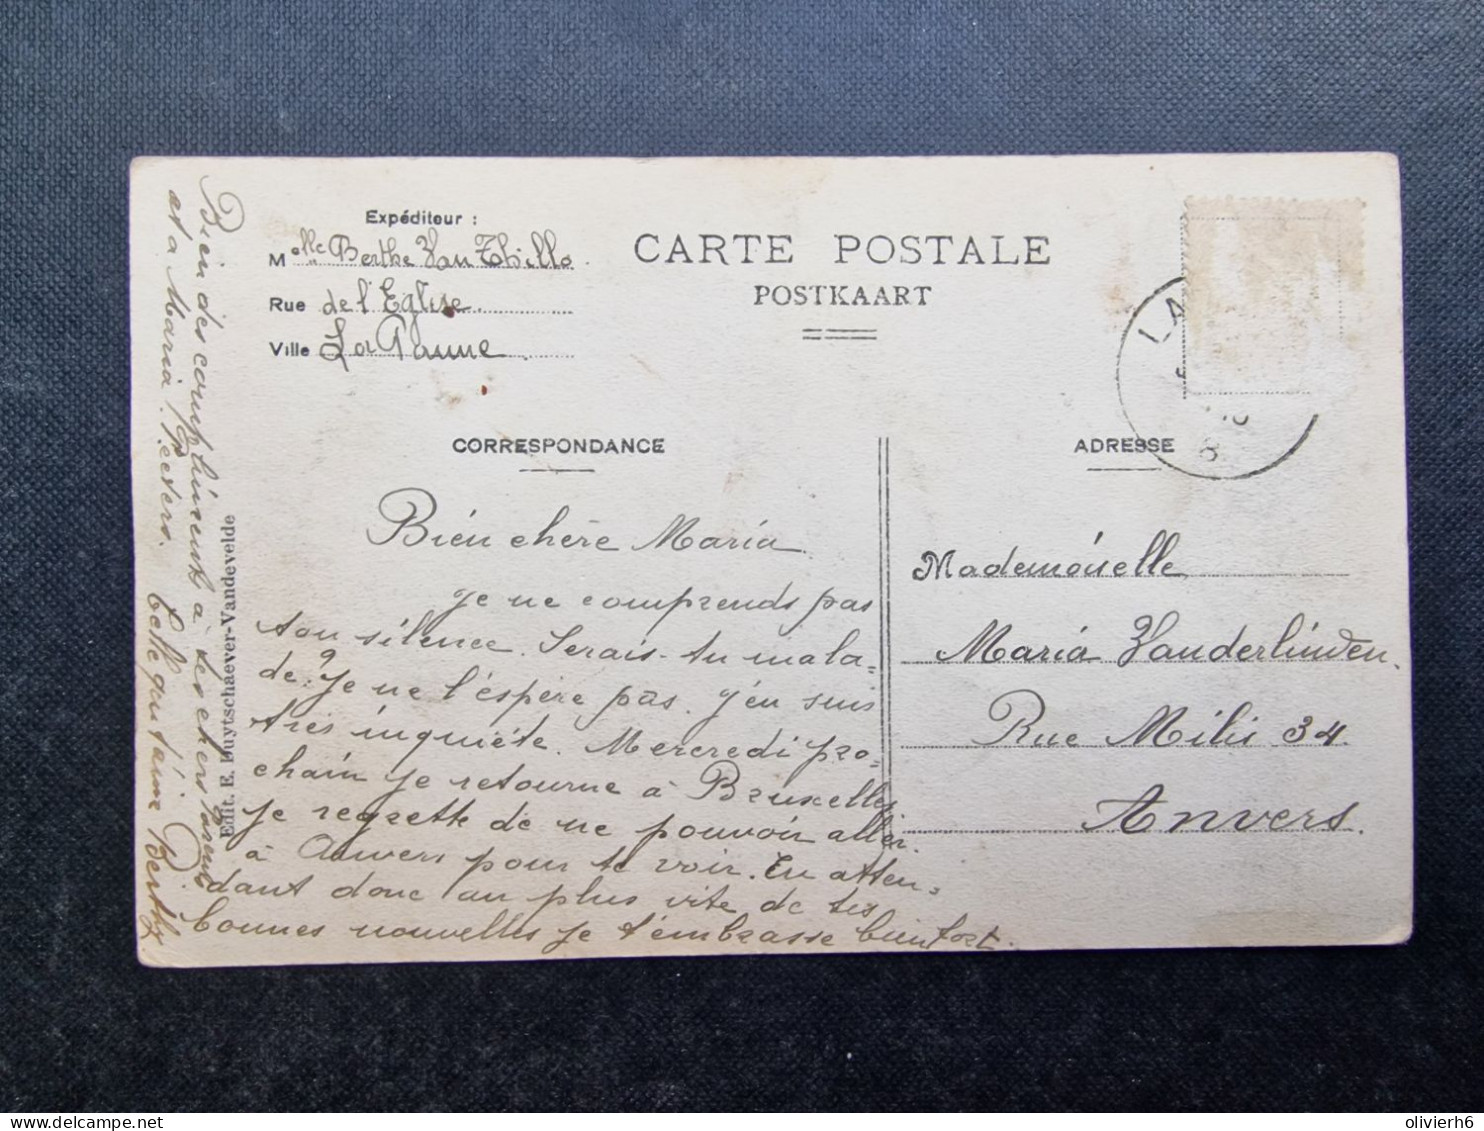 Expéditeur :
Melle Berthe Van Thillo
Rue de l'Eglise
Ville La Panne
CARTE POSTALE
POSTKAART
LA
CORRESPONDANCE
ADRESSE
Bien chère Maria
Je ne comprends pas
ton silence. Serais-tu mala=
de? Je ne l'espère pas. J'en suis
très inquiète. Mercredi pro=
chain je retourne à Bruxelles
Je regrette de ne pouvoir aller
à Anvers pour te voir. En atten=
dant donc au plus vite de tes
bonnes nouvelles je t'embrasse bien fort.
Mademoiselle
Maria Vanderlinden.
Rue Milis 34.
Anvers.
Bien des compliments à tes chers
et à Maria Peeters. Celle qui t'aime Berthe
Edit. E. Huytschaever-Vandevelde
olivierh6